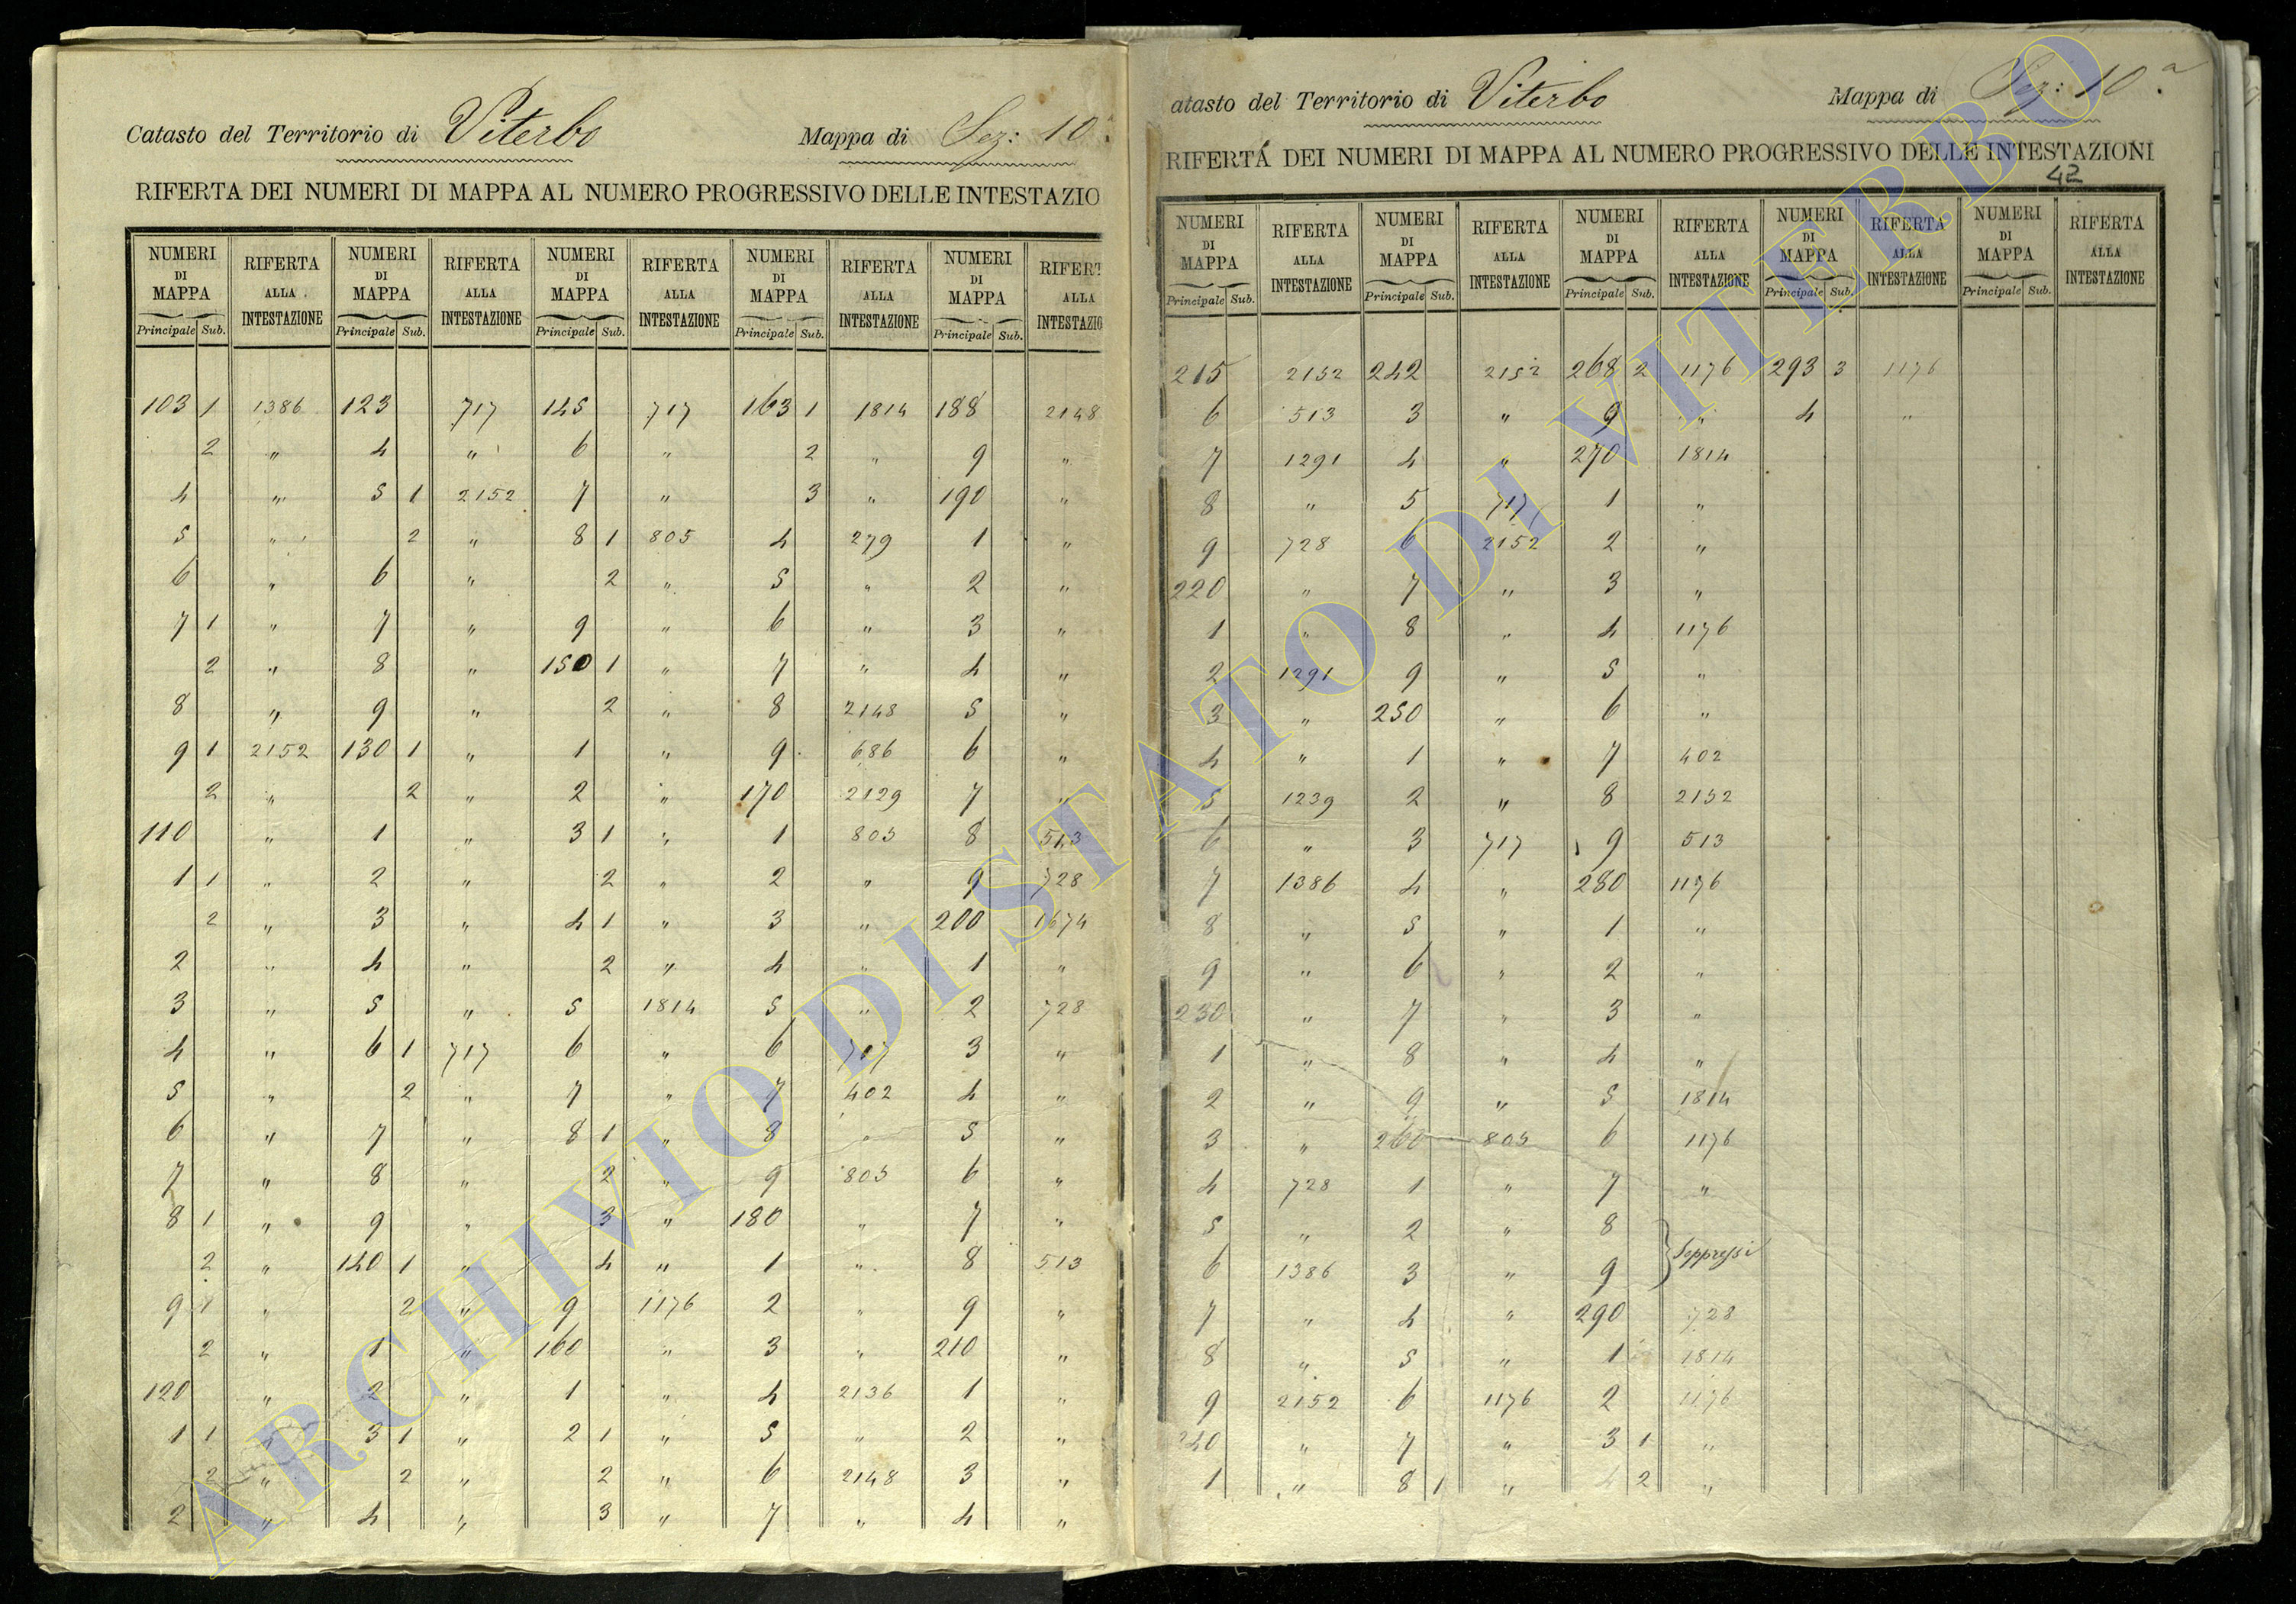 Catasto del Territorio di Viterbo Mappa di Sez: 10ª
RIFERTA DEI NUMERI DI MAPPA AL NUMERO PROGRESSIVO DELLE INTESTAZIO
NUMERI DI MAPPA RIFERTA ALLA INTESTAZIONE NUMERI DI MAPPA RIFERTA ALLA INTESTAZIONE NUMERI DI MAPPA RIFERTA ALLA INTESTAZIONE NUMERI DI MAPPA RIFERTA ALLA INTESTAZIONE NUMERI DI MAPPA RIFERT ALLA INTESTAZIO
Principale Sub. Principale Sub. Principale Sub. Principale Sub. Principale Sub.
103 1 1386 123 717 145 717 163 1 1814 188 2148
2 " 4 " 6 " 2 " 9 "
4 " 5 1 2152 7 " 3 " 190 "
5 " 2 " 8 1 805 4 279 1 "
6 " 6 " 2 " 5 " 2 "
7 1 " 7 " 9 " 6 " 3 "
2 " 8 " 150 1 " 7 " 4 "
8 " 9 " 2 " 8 2148 5 "
9 1 2152 130 1 " 1 " 9 686 6 "
2 " 2 " 2 " 170 2129 7 "
110 " 1 " 3 1 " 1 805 8 513
1 1 " 2 " 2 " 2 " 9 728
2 " 3 " 4 1 " 3 " 200 1674
2 " 4 " 2 " 4 " 1 "
3 " 5 " 5 1814 5 " 2 728
4 " 6 1 717 6 " 6 717 3 "
5 " 2 " 7 " 7 402 4 "
6 " 7 " 8 1 " 8 " 5 "
7 " 8 " 2 " 9 805 6 "
8 1 " 9 " 3 " 180 " 7 "
2 " 140 1 " 4 " 1 " 8 513
9 1 " 2 " 9 1176 2 " 9 "
2 " 1 " 160 " 3 " 210 "
120 " 2 " 1 " 4 2136 1 "
1 1 " 3 1 " 2 1 " 5 " 2 "
2 " 2 " 2 " 6 2148 3 "
2 " 4 " 3 " 7 " 4 "
atasto del Territorio di Viterbo Mappa di Sez: 10.ª
RIFERTA DEI NUMERI DI MAPPA AL NUMERO PROGRESSIVO DELLE INTESTAZIONI
42
NUMERI DI MAPPA RIFERTA ALLA INTESTAZIONE NUMERI DI MAPPA RIFERTA ALLA INTESTAZIONE NUMERI DI MAPPA RIFERTA ALLA INTESTAZIONE NUMERI DI MAPPA RIFERTA ALLA INTESTAZIONE NUMERI DI MAPPA RIFERTA ALLA INTESTAZIONE
Principale Sub. Principale Sub. Principale Sub. Principale Sub. Principale Sub.
215 2152 242 2152 268 2 1176 293 3 1176
6 513 3 " 9 " 4 "
7 1291 4 " 270 1814
8 " 5 717 1 "
9 728 6 2152 2 "
220 " 7 " 3 "
1 " 8 " 4 1176
2 1291 9 " 5 "
3 " 250 " 6 "
4 " 1 " 7 402
5 1239 2 " 8 2152
6 " 3 717 9 513
7 1386 4 " 280 1176
8 " 5 " 1 "
9 " 6 2 "
230 " 7 " 3 "
1 " 8 " 4 "
2 " 9 " 5 1814
3 " 260 805 6 1176
4 728 1 " 7 "
5 " 2 " 8
6 1386 3 " 9 Soppressi
7 " 4 " 290 728
8 " 5 " 1 1814
9 2152 6 1176 2 1176
240 " 7 " 3 1 "
1 " 8 1 " 4 2 "
ARCHIVIO DI STATO DI VITERBO